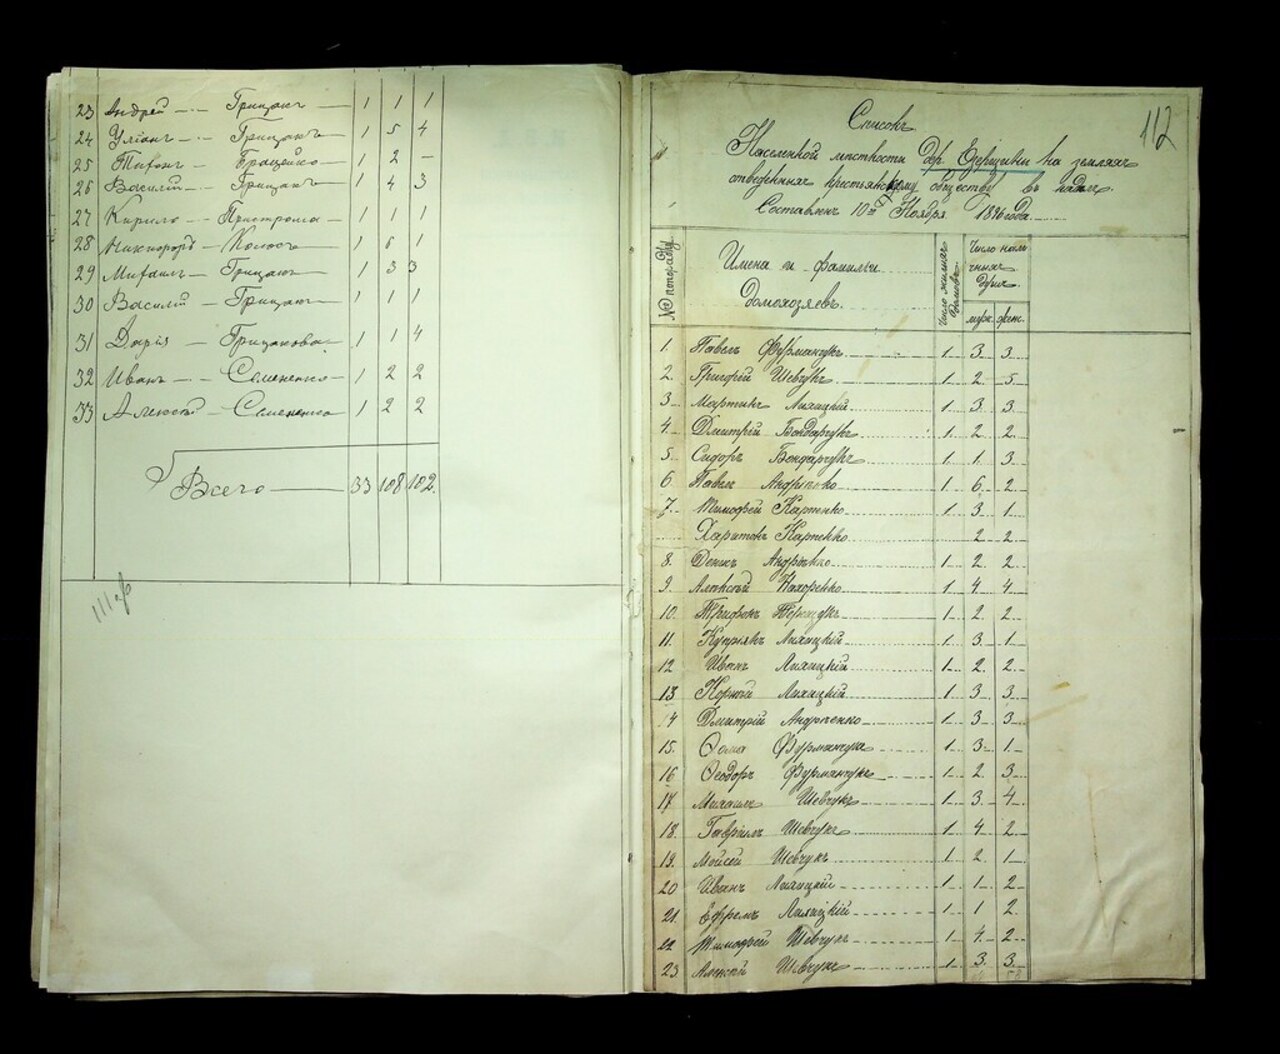 23 Андрей — Грицакъ — 1 1 1
24 Уліанъ — Грицакъ — 1 5 4
25 Тихонъ — 1 2 —
26 Василій — Грицакъ — 1 4 3
27 Кирило — Пристрома — 1 1 1
28 Никифоръ — Колосъ — 1 6 1
29 Михаилъ — Грицакъ — 1 3 3
30 Василій — Грицакъ — 1 1 1
31 Дарія — Грицакова — 1 1 4
32 Иванъ — Семененко — 1 2 2
33 Алексѣй — Семененко 1 2 2
Всего — 33 108 102.
111об
112
Списокъ
Населенной мѣстности дер. на земляхъ
отведенныхъ крестьянскому обществу въ надѣлъ.
Составленъ 10го Ноября 1896 года
№ по порядку
Имена и фамиліи
домохозяевъ.
Число жилыхъ домовъ
Число наличныхъ душъ
муж. жен.
1. Павелъ Фурманчукъ 1. 3. 3.
2. Григорій Шевчукъ 1. 2. 5.
3. Мартинъ Лихицкій 1. 3. 3.
4. Дмитрій Бондарчукъ 1. 2. 2.
5. Сидоръ Бондарчукъ 1. 1. 3.
6. Павелъ Андріенко 1. 6. 2.
7. Тимофей Карпенко 1. 3. 1.
Харитонъ Карпенко 2. 2.
8. Денисъ Андріенко 1. 2. 2.
9. Алексѣй Назоренко 1. 4. 4.
10. Трифонъ 1. 2. 2.
11. Купріянъ Лихицкій 1. 3. 1.
12 Иванъ Лихицкій 1. 2. 2.
13 Корній Лихицкій 1. 3. 3.
14 Дмитрій Андріенко 1. 3. 3.
15. Ѳома Фурманчукъ 1. 3. 1.
16 Ѳеодоръ Фурманчукъ 1. 2. 3.
17 Михаилъ Шевчукъ 1. 3. 4.
18. Гавріилъ Шевчукъ 1. 4. 2.
19. Мойсей Шевчукъ 1. 2. 1.
20 Иванъ Лихицкій 1. 1. 2.
21. Ефремъ Лихицкій 1. 1 2.
22 Тимофей Шевчукъ 1. 4. 2.
23. Алексѣй Шевчукъ 1. 3. 3.